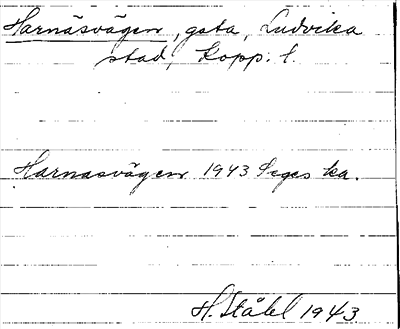 Harnäsvägen, gata, Ludvika
stad, Kopp. l.
Harnäsvägen 1943 Seges ka.
H. Ståhl 1943